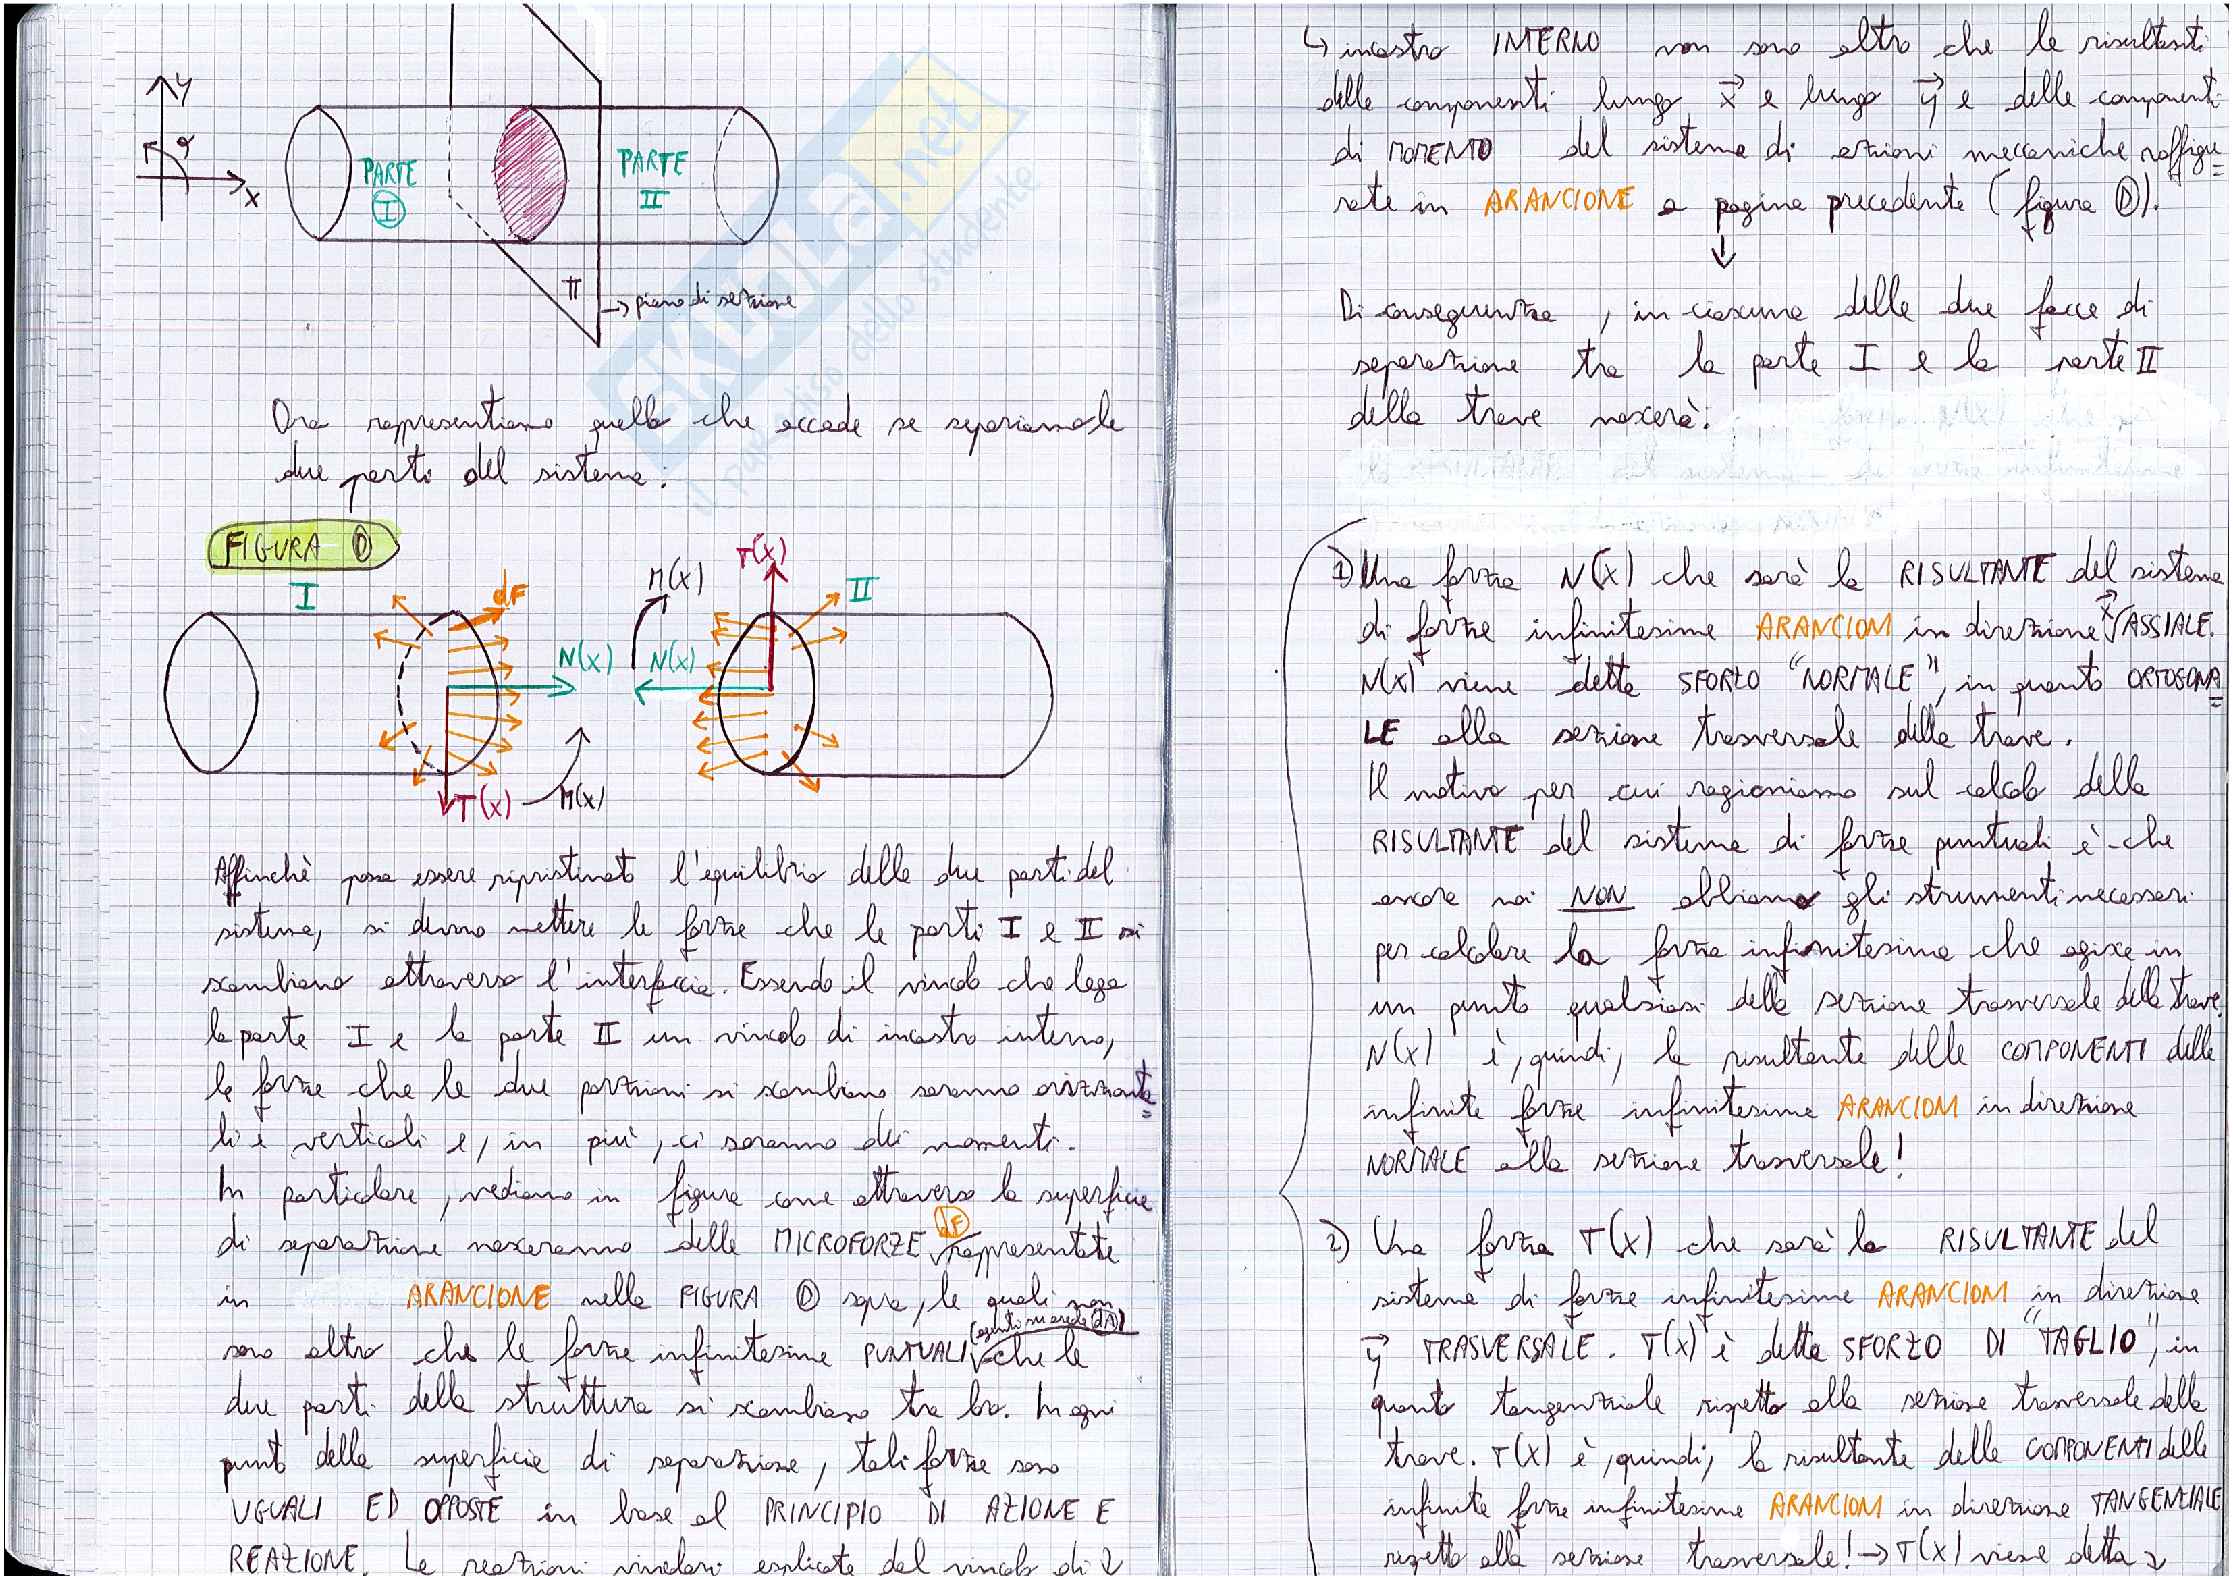 y
φ
x
PARTE
I
PARTE
II
π
→ piano di sezione
Ora rappresentiamo quello che accade se separiamo le
due parti del sistema:
FIGURA D
I
dF
N(x)
T(x)
M(x)
M(x)
N(x)
T(x)
II
Affinchè possa essere ripristinato l'equilibrio delle due parti del
sistema, si devono mettere le forze che le parti I e II si
scambiano attraverso l'interfaccia. Essendo il vincolo che lega
la parte I e la parte II un vincolo di incastro interno,
le forze che le due porzioni si scambiano saranno orizzonta=
li e verticali e, in più, ci saranno dei momenti.
In particolare, vediamo in figura come attraverso la superficie
di separazione nasceranno delle MICROFORZE dF rappresentate
in ARANCIONE nella FIGURA D sopra, le quali non
sono altro che le forze infinitesime PUNTUALI (agenti su aree dA) che le
due parti della struttura si scambiano tra loro. In ogni
punto della superficie di separazione, tali forze sono
UGUALI ED OPPOSTE in base al PRINCIPIO DI AZIONE E
REAZIONE. Le reazioni vincolari esplicate dal vincolo di
↳ incastro INTERNO non sono altro che le risultanti
delle componenti lungo x e lungo y e delle componenti
di MOMENTO del sistema di azioni meccaniche raffigu=
rate in ARANCIONE a pagina precedente (figura D).
↓
Di conseguenza, in ciascuna delle due facce di
separazione tra la parte I e la parte II
della trave nascerà:
1) Una forza N(x) che sarà la RISULTANTE del sistema
di forze infinitesime ARANCIONI in direzione x ASSIALE.
N(x) viene detta SFORZO "NORMALE", in quanto ORTOGONA=
LE alla sezione trasversale della trave.
Il motivo per cui ragioniamo sul calcolo della
RISULTANTE del sistema di forze puntuali è che
ancora noi NON abbiamo gli strumenti necessari
per calcolare la forza infinitesima che agisce in
un punto qualsiasi della sezione trasversale della trave.
N(x) è, quindi, la risultante delle COMPONENTI delle
infinite forze infinitesime ARANCIONI in direzione
NORMALE alla sezione trasversale!
2) Una forza T(x) che sarà la RISULTANTE del
sistema di forze infinitesime ARANCIONI in direzione
y TRASVERSALE. T(x) è detta SFORZO DI "TAGLIO", in
quanto tangenziale rispetto alla sezione trasversale della
trave. T(x) è, quindi, la risultante delle COMPONENTI delle
infinite forze infinitesime ARANCIONI in direzione TANGENZIALE
rispetto alla sezione trasversale! → T(x) viene detta
eKuLa.net
il paradiso dello studente